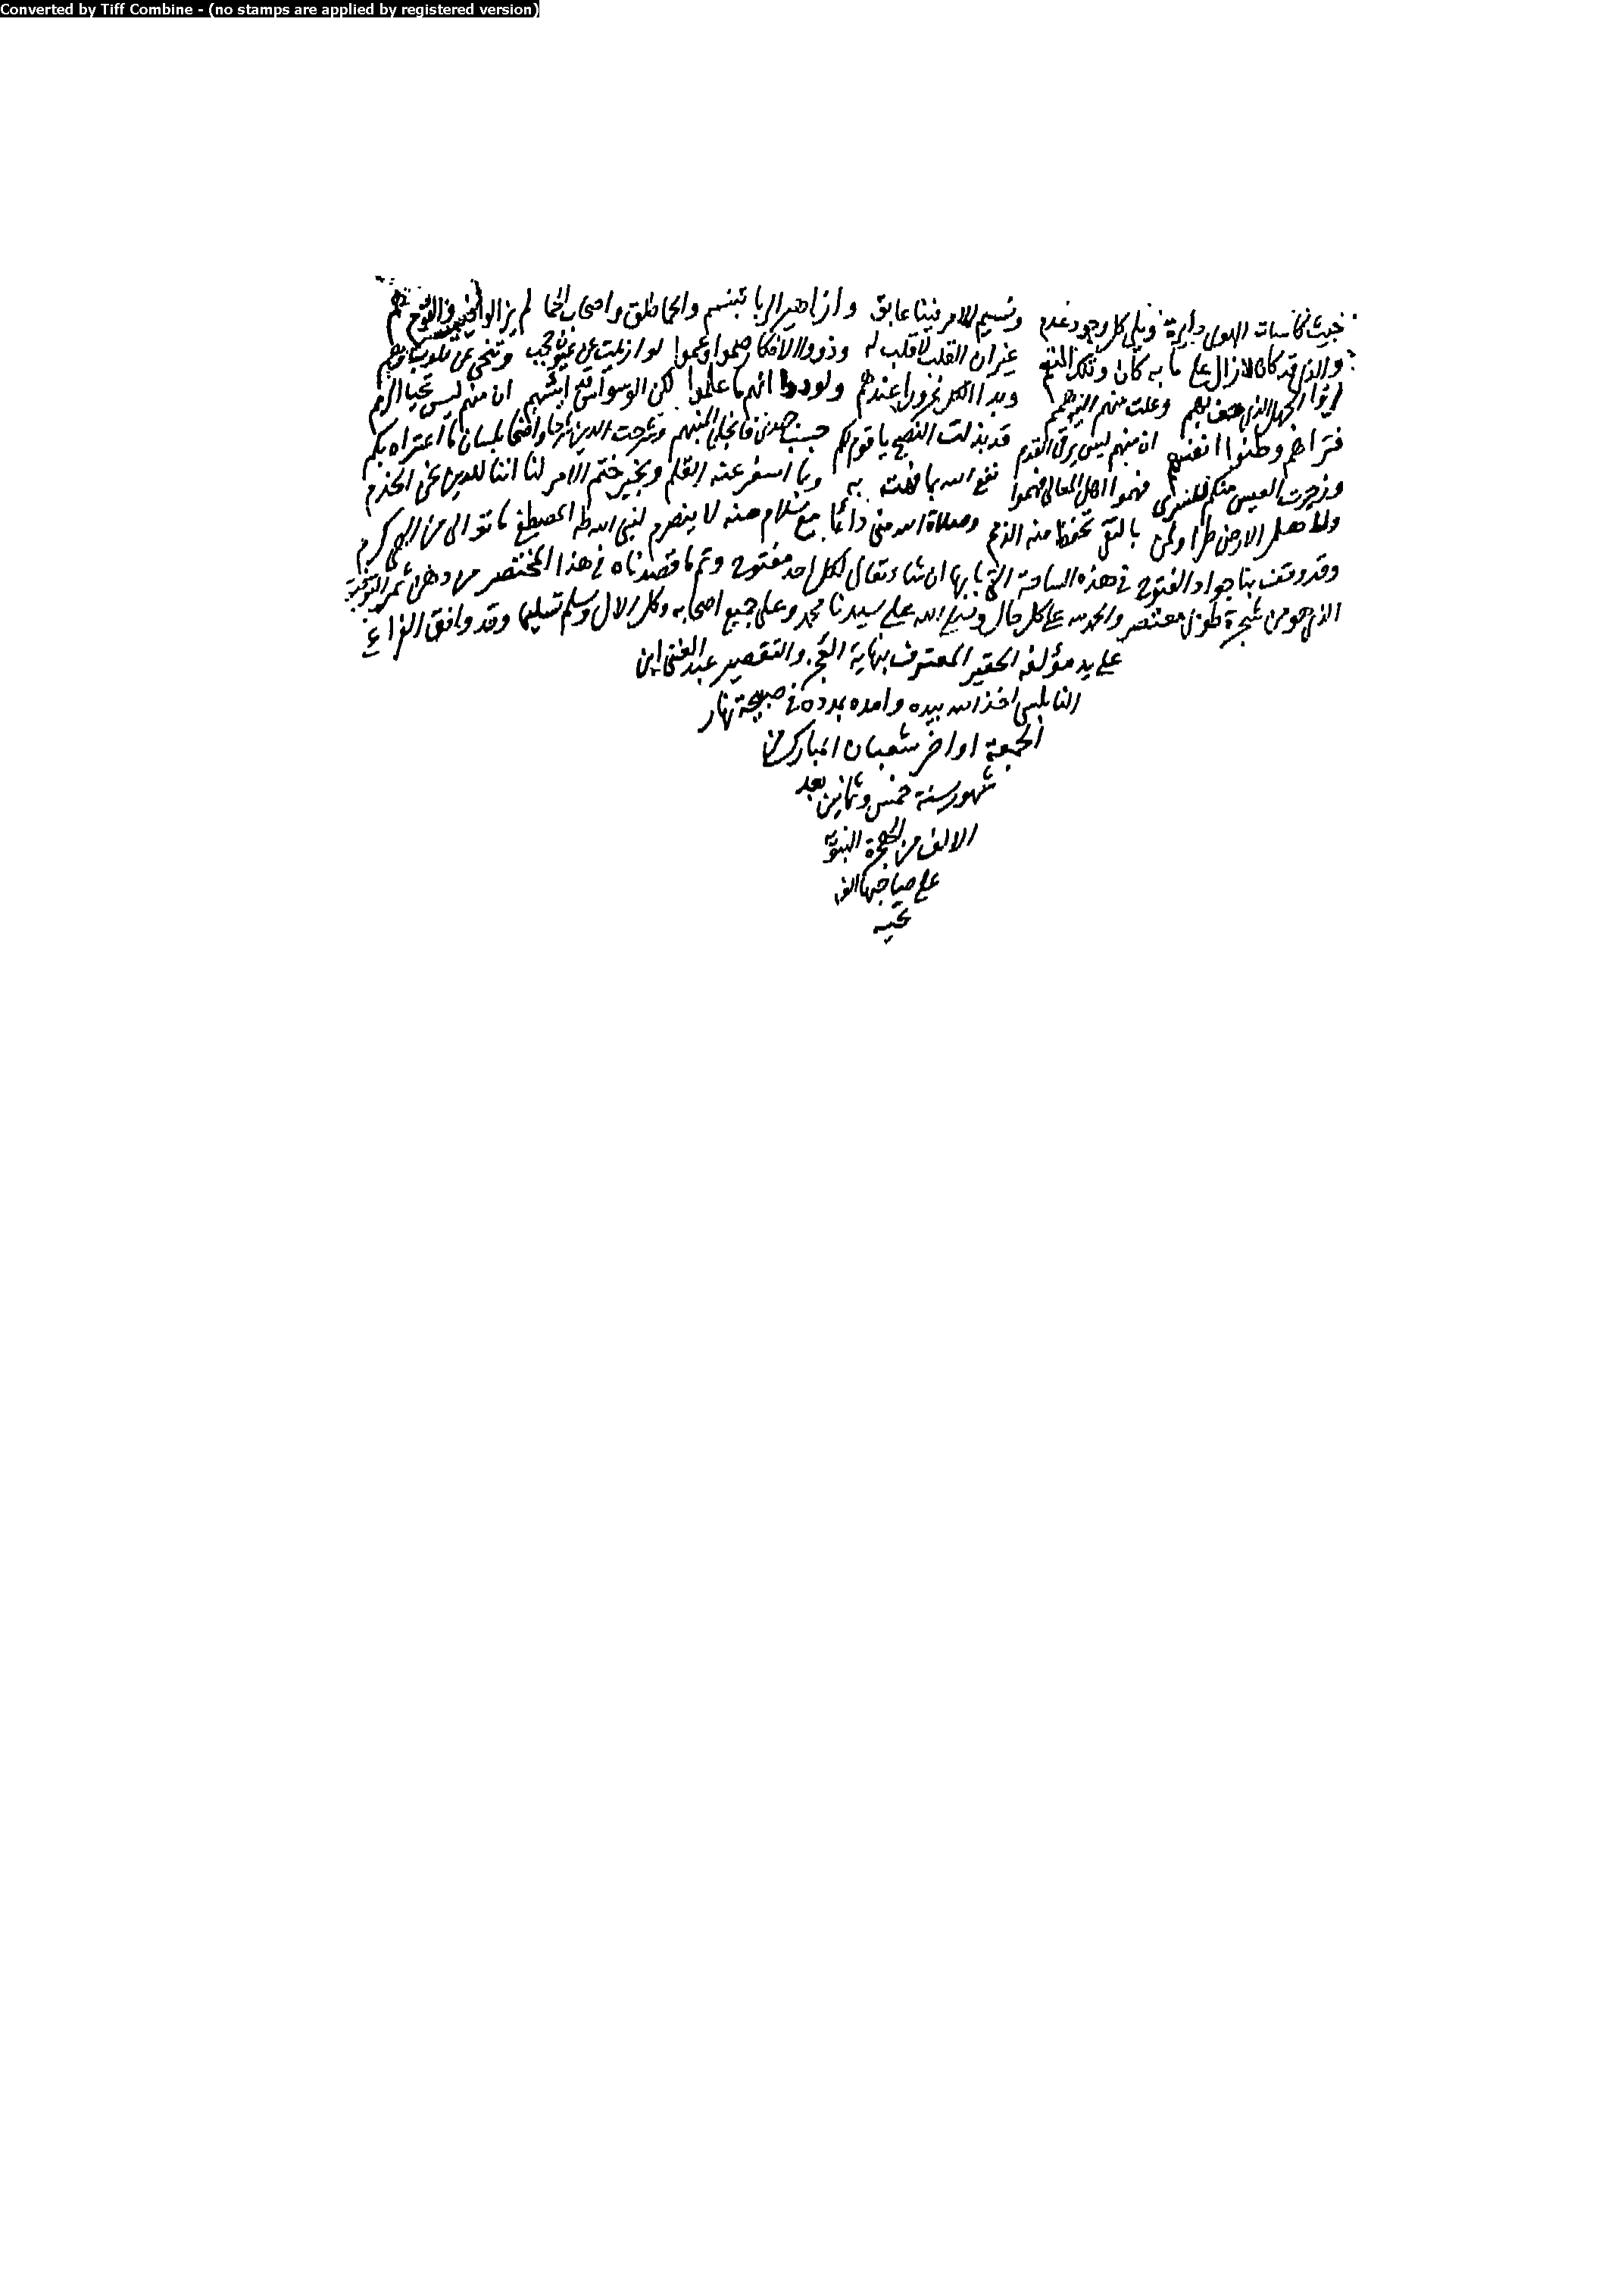 Converted by Tiff Combine - (no stamps are applied by registered version)
حيث كاسات الهوى دايرة وبلى كل وجود عدم ونسيم الامر فينا عابق وازاهير الربا تبتسم والحما طلق واصحاب الحما لم يزالوا فيه والقوم هم
والذي قد كان لازال على ما به كان وتلك النعم غير ان القلب لا قلب له وذووا الافكار صموا وعموا لو ازيلت عن عيون حجب وتنحى عن قلوب
الجهل الذي حف بهم وعلت منهم اليه همم وبدا الكل غرورا عندهم ولودوا انهم ما علموا لكن الوسواس ان منهم ليس تحيا الرمم
فتراهم وطنوا انفسهم ان منهم ليس يرقى القدم قد بذلت النصح يا قوم لكم حسب جهدي فانجلى المبهم وشرحت الدين شرحا واضحا بلسان ما اعتراه بكم
وزجرت العيس منكم للسرى فهموا اهل المعالي فهموا نفع الله بما فهت به وبما اسفر عنه القلم وبخير ختم الامر لنا اننا للدين نحن الخدم
ولاهل الارض طرا ولمن بالتقى تحفظ منه الذمم وصلاة الله مني دائما مع سلام منه لا ينصرم لنبي الله طه المصطفى ما توالى من الهي كرم
وقد وقف بنا جواد الفتوح في هذه الساحة التي بابها ان شاء تعالى لكل احد مفتوح وتم ما قصدناه في هذا المختصر من دهن ثمر التوفيق
الذي هو من شجرة طوبى معتصر والحمد لله على كل حال وصلى الله على سيدنا محمد وعلى جميع اصحابه وكل الال وسلم تسليما وقد وافق الفراغ
على يد مؤلفه الحقير المعترف بنهاية العجز والتقصير عبد الغني ابن
النابلسي اخذ الله بيده وامده بمدده في صبيحة نهار
الجمعة اواخر شعبان المبارك من
شهور سنة خمس وثمانين بعد
الالف من الهجرة النبوية
على صاحبها الف
تحيه